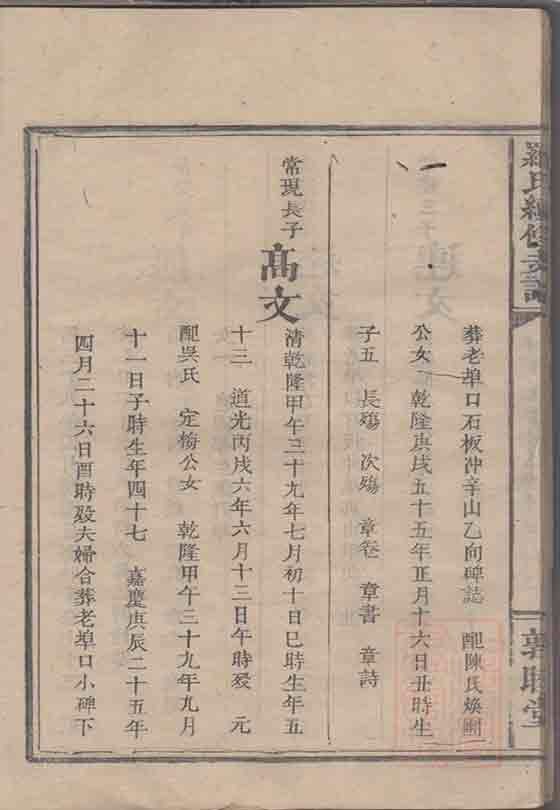 羅氏續修支譜
葬老埠口石板冲辛山乙向碑誌　配陳氏煥
公女　乾隆庚戌五十五年正月十六日丑時生
子五　長殤　次殤　章卷　章書　章詩
常現長子
高文
清乾隆甲午三十九年七月初十日巳時生年五
十三　道光丙戌六年六月十三日午時歿　元
配吳氏　定榆公女　乾隆甲午三十九年九月
十一日子時生年四十七　嘉慶庚辰二十五年
四月二十六日酉時歿夫婦合葬老埠口小碑下
敦睦堂